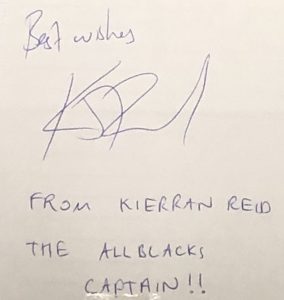 Best wishes
FROM KIERRAN REID
THE ALLBLACKS
CAPTAIN!!